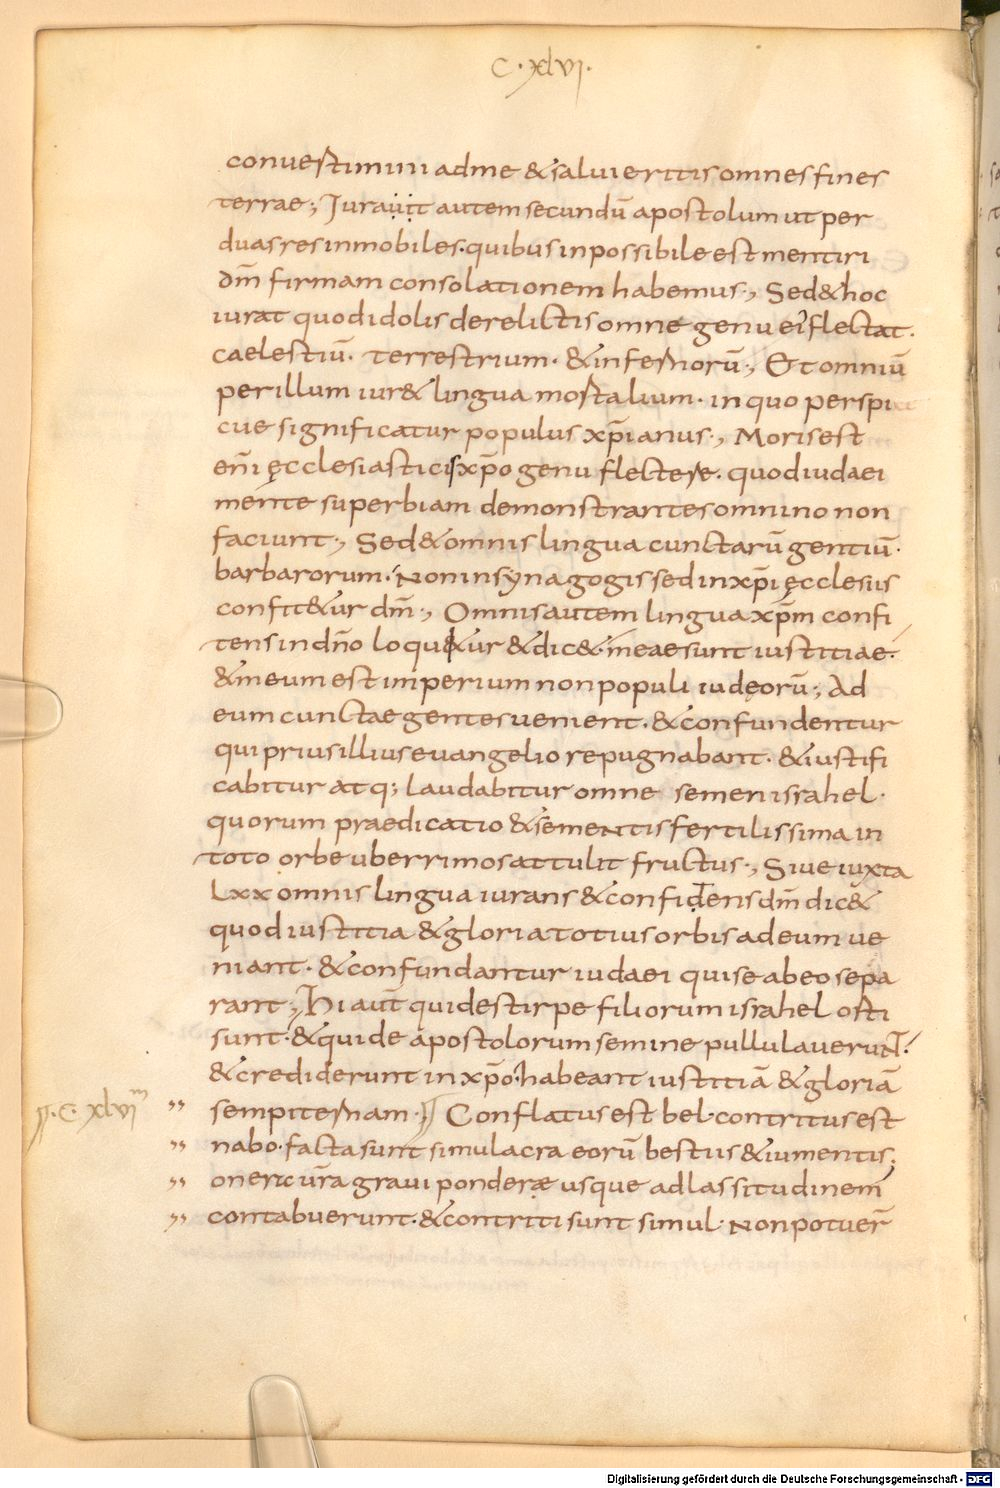 C·xlvi·
conuestimini adme & salui eritis omnes fines
terrae; Iurauit autem secundū apostolum ut per
duas res inmobiles. quibus inpossibile est mentiri
dm̄ firmam consolationem habemus·, Sed & hoc
iurat quod idolis derelictis omne genu ei flectat.
caelestiū. terrestrium. & infernorū·, Et omniū
per illum iur& lingua mortalium. in quo perspi
cue significatur populus xp̄ianus·, Moris est
eni̅ ęcclesiasticis xp̄o genu flectere. quod iudaei
mente superbiam demonstrantes omnino non
faciunt·, Sed & omnis lingua cunctarū gentiū·
barbarorum. Non in synagogis sed in xp̄i ęcclesiis
confit&ur dm̄·, Omnis autem lingua xp̄m confi
tens in dn̄o loqu&ur & dic&. meae sunt iustitiae.
& meum est imperium non populi iudęorū; Ad
eum cunctae gentes uenient. & confundentur
qui prius illius euangelio repugnabant. & iustifi
cabitur atq; laudabitur omne semen israhel·
quorum praedicatio & sementis fertilissima in
toto orbe uberrimos attulit fructus·, Siue iuxta
Lxx omnis lingua iurans & confidens dm̄ dic&
quod iustitia & gloria totius orbis ad eum ue
niant. & confundantur iudaei qui se ab eo sepa
rant; Hi aut̄ qui de stirpe filiorum israhel orti
sunt. & qui de apostolorum semine pullulauerunt.
& crediderunt in xp̄o. habeant iustitiā & gloriā
𝔭·C·xlvim sempiternam·, Conflatus est bel. contritus est
nabo. facta sunt simulacra eorū bestiis & iumentis;
onera ur̄a graui pondere usque ad lassitudinem
contabuerunt. & contriti sunt simul. Non potuer̄
Digitalisierung gefördert durch die Deutsche Forschungsgemeinschaft - DFG